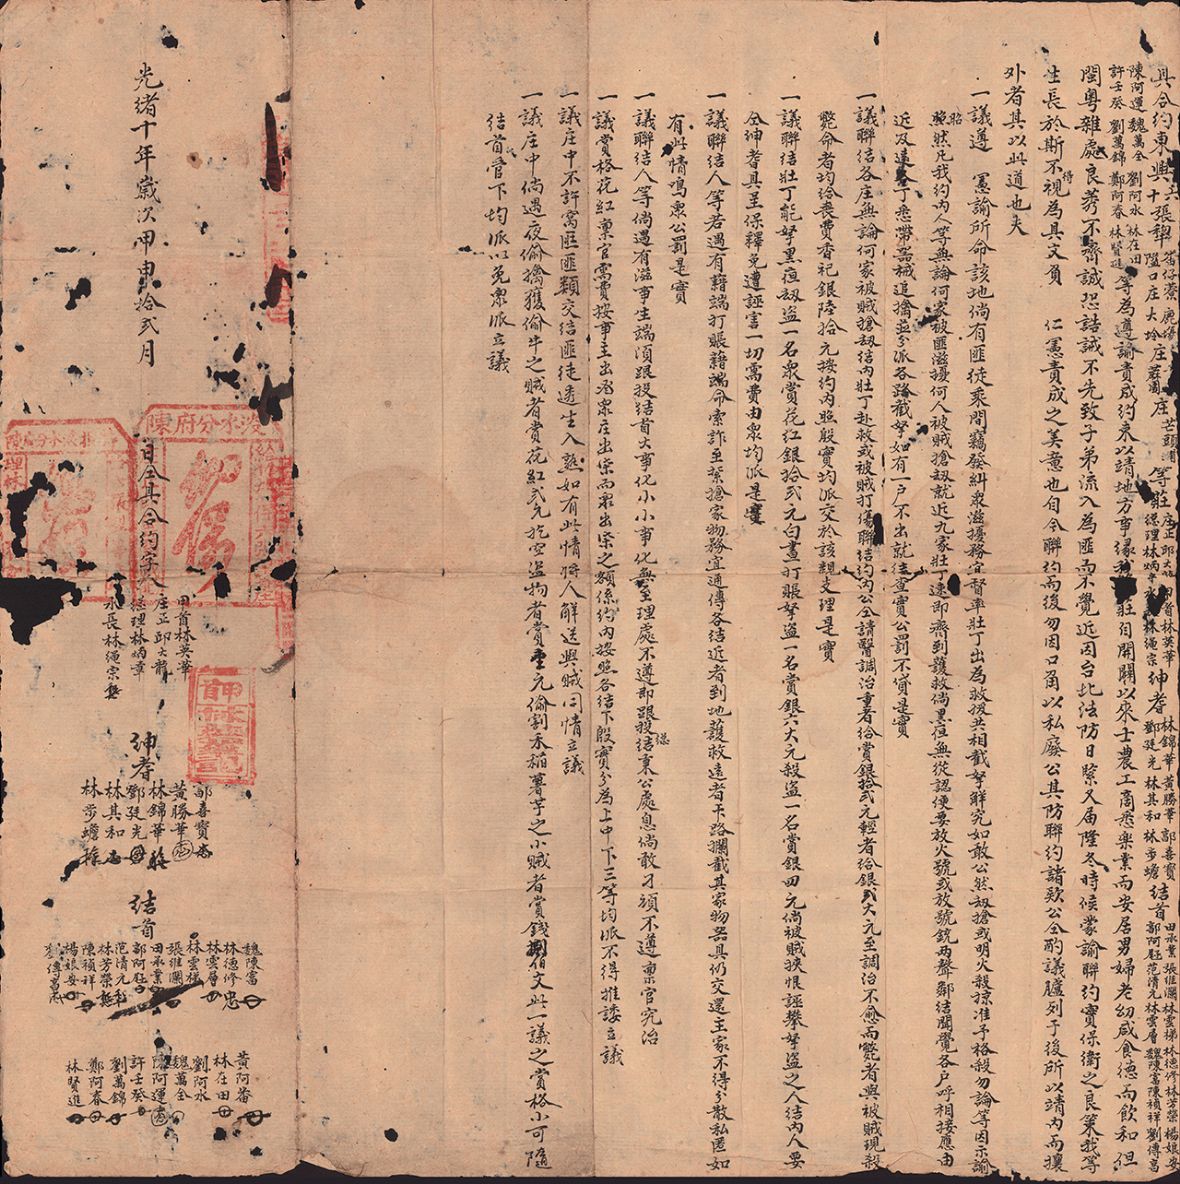 具合約東興六十張犂 笛仔藔 鹿場 隘口庄 大坽庄 庄 芒頭 等莊 庄正邱大 總理林炳章 甲首林英華 林繩宗 紳耆 林錦華 黃勝華 鄒喜寶 鄧廷光 林其和 林步蟾 結首 田承業 張維瀾 林雲梯 林德修 林芳榮 楊娘安 鄒阿 范清元 林雲層 魏陳富 陳禎祥 劉傳
陳阿運 魏萬全 劉阿水 林在田 許壬癸 劉萬錦 鄭阿春 林賢進 等為遵諭責成約束以靖地方事緣 莊自開闢以來士農工商悉樂業而安居男婦老幼咸食德而飲和但
閩粵雜處良莠不齊誠恐誥誡不先致子弟流入為匪而不覺近因台北法防日緊又届隆冬時候蒙諭聯約實保衛之良策我等
生長於斯不得視為具文負 仁憲責成之美意也自今聯約而後勿因口角以私廢公其防聯約諸欵公仝酌議臚列于後所以靖內而攘
外者其以此道也夫
一議遵 憲諭所命該地倘有匪徒乘間竊發糾衆滋擾務宜督率壯丁出為救援共相截拏解究如敢公然刼搶或明火殺掠准予格殺勿論等因示諭
昭然凡我約內人等無論何家被匪滋擾何人被賊搶刼就近九家壯丁速即齊到護救倘黑夜無從認便要放火號或放號銃兩聲鄰結聞覺各戶呼相接應由
近及遠 丁悉帶器械追擒並分派各路截拏如有一戶不出就徃查實公罰不貸是實
一議聯結各庄無論何家被賊搶刼結內壯丁赴救或被賊打傷聯結約內公仝請醫調治重者給賞銀拾弍元輕者給銀弍大元至調治不愈而斃者與被賊現殺
斃命者均給喪費香祀銀陸拾元按約內照殷實均派交於該親支理是實
一議聯結壯丁能拏黑夜刼盜一名衆賞花紅銀拾弍元白晝打賬拏盜一名賞銀六大元殺盜一名賞銀四元倘被賊挾恨誣攀拏盜之人結內人要
仝紳耆具呈保釋免遭誣害一切需費由衆均派是實
一議聯結人等若遇有藉端打賬藉端命索詐至紮搶家物務宜通傳各結近者到地護救遠者卡路攔截其家物器具仍交還主家不得分散私匿如
有此情鳴衆公罰是實
一議聯結人等倘遇有滋事生端須跟投結首大事化小小事化無至理處不遵即跟投總結秉公處息倘敢刁頑不遵禀官究治
一議賞格花紅禀官需費按事主出 衆庄出 而衆出 之額係約內按照各結下殷實分為上中下三等均派不得推諉立議
一議庄中不許窩匪匪類交結匪徒透生入熟如有此情將人解送與賊同情立議
一議庄中倘遇夜偷擒獲偷牛之賊者賞花紅弍元挖空盜物者賞 元偷割禾稻薯芋之小賊者賞錢 伯文此一議之賞格小可隨
結首管下均派以免衆派立議
甲首林英華
庄正邱大
總理林炳章
林繩宗
紳耆
鄒喜寶
黃勝華
林錦華
鄧廷光
林其和
林步蟾
結首
魏陳富
林德修
林雲層
林雲梯
張維瀾
田承業
鄒阿
范清元
林芳榮
陳禎祥
楊娘安
劉傳
黃阿番
林在田
劉阿水
魏萬全
陳阿運
許壬癸
劉萬錦
鄭阿春
林賢進
光緒十年歲次甲申拾弍月 日仝具合約字
淡水分府陳
甲首